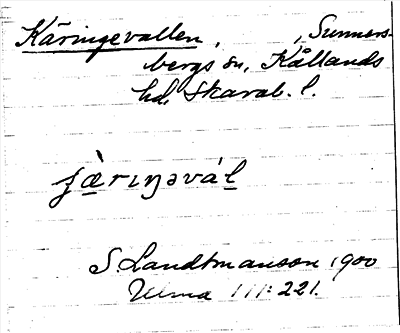 Käringevallen, , Sunners-
bergs sn, Kållands
hd, Skarab. l.
ʃæ̀rıŋəvá̱l
S Landtmanson 1900
Ulma 111:221.